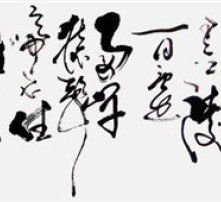 江陵
一日還
兩岸
猿聲
啼不住